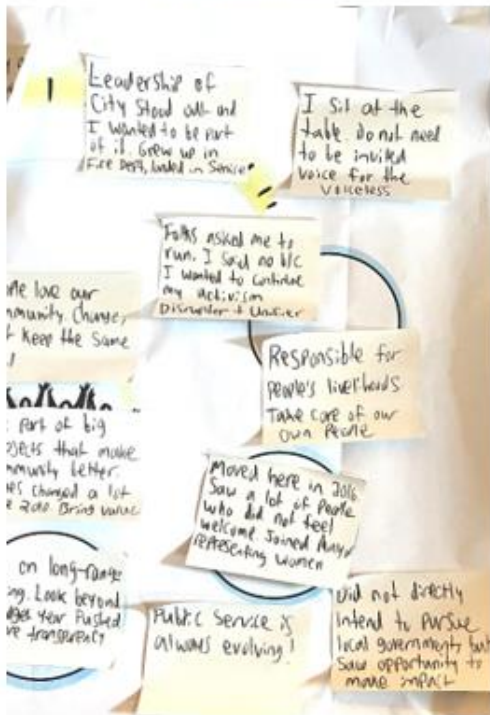 Leadership of
City Stood out and
I wanted to be part
of it. Grew up in
Fire Dept, landed in Service
I sit at the
table. do not need
to be invited
voice for the
voiceless
Folks asked me to
run. I said no b/c
I wanted to continue
my activism
Disrupter + Unifier
love our
Change,
Keep the Same
!
Responsible for
People's livelihoods
Take care of our
own People
Part of big
that make
better
Changed a lot
2010. Bring value
Moved here in 2016
Saw a lot of People
who did not feel
welcome Joined
representing women
on long-range
Look beyond
year Pushed
transparency
Public Service is
always evolving!
Did not directly
Intend to Pursue
local government but
Saw opportunity to
make impact